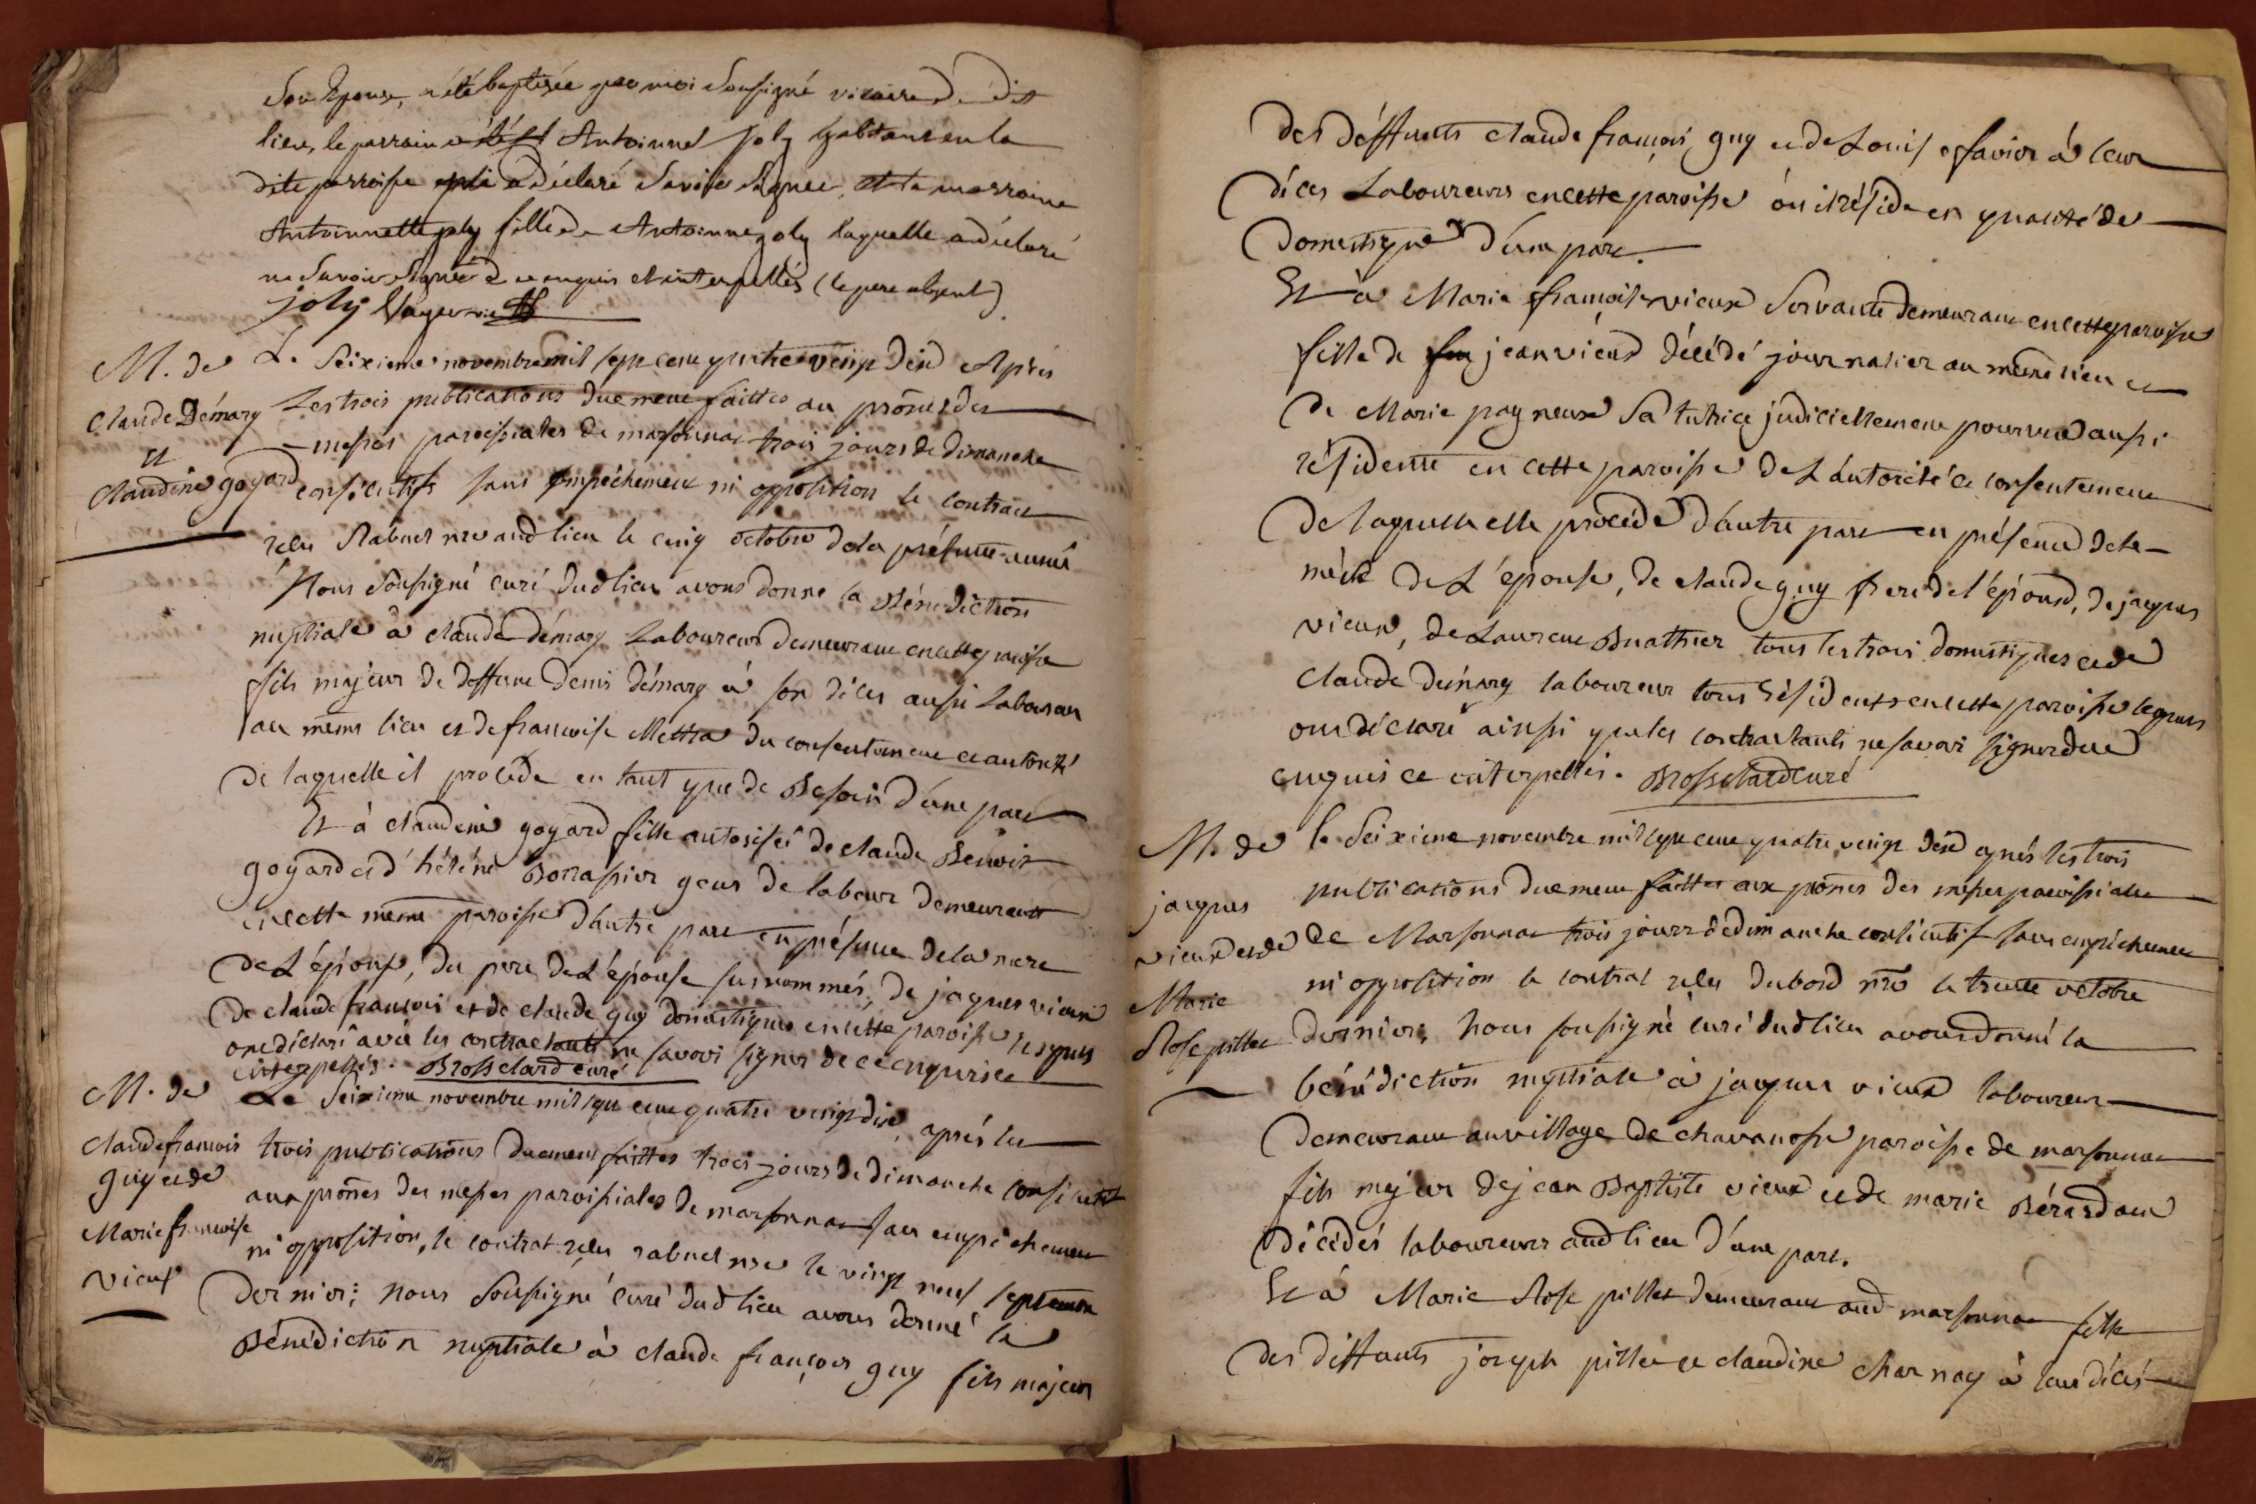 Son Epouse, a été baptisée par moi Soussigné vicaire du dit
lieu, le parrain a été Antoinne joly habitant en la
dite parroisse a déclaré Savoir Signer, et la marraine
Antoinnette joly fille de Antoinne joly laquelle a déclaré
ne Savoir Signer de ce enquis et interpellés (le pere absent)
joly
M. de
Claude Démary
et
Claudine goyard
Le Seixieme novembre mil sept cent quatre vingt dix Après
Les trois publications duement faittes au prônes des
messes paroissiales de marsonnas trois jours de dimanche
consécutifs sans empêchement ni opposition le contract
reçu Rabuel nre aud lieu le cinq octobre de la présente année
Nous Soussigné curé dud lieu avons donné la Bénédiction
nuptiale à claude démary Laboureur demeurant en cette paroisse
fils majeur de deffunt Denis démary à son déces aussi Laboureur
au même lieu et de francoise Mettra du consentement et autorité
de laquelle il procède en tant que de Besoin d'une part
Et à claudine goyard fille autorisée de claude Benoit
goyard et d'héléne Borrassier gens de labeur demeurant
en cette même paroisse d'autre part en présence de la mere
de L'époux, du pere de L'épouse susnommés, de jaques vieux
de claude françois et de claude guy domestiques en cette paroisse lesquels
ont déclaré avec les contractants ne savoir signer de ce enquis et
interpellés. Brossclard curé
M. de
Claude francois
guy et de
Marie francoise
vieux
Le Seixieme novembre mil sept cent quatre vingt dix, après les
trois publications duement faittes trois jours de dimanche consécutifs
aux prônes des messes paroissiales de marsonnas sans empêchement
ni opposition, le contrat reçu rabuel nre le vingt neuf septembre
dernier; Nous Soussigné curé dud lieu avons donné la
Bénédiction nuptiale à claude françois guy fils majeur
des déffunts claude françois guy et de Louise favier à leur
déces Laboureurs en cette paroisse où il réside en qualité de
domestique d'une part.
Et à Marie françoise vieux Servante demeurant en cette paroisse
fille de jean vieux décédé journalier au même lieu et
de Marie pagneux Sa tutrice judiciellement pourvue aussi
résidente en cette paroisse de L'autorité et consentement
de laquelle elle procède d'autre part en présence de la
mère de L'épouse, de claude guy frere de l'époux, de jaques
vieux, de Laurent Buathier tous les trois domestiques et de
claude démary laboureur tous résidents en cette paroisse lesquels
ont déclaré ainsi que les contractants ne savoir signer de ce
enquis et interpellés. Brossclard curé
M. de
jacques
vieux et de
Marie
Rose pillet
le Seixieme novembre mil sept cent quatre vingt dix après les trois
publications duement faittes aux prônes des messes paroissiales
de Marsonnas trois jours de dimanche consécutif sans empêchement
ni opposition le contrat reçu dubord nre le trente octobre
dernier, Nous soussigné curé dud lieu avons donné la
bénédiction nuptiale à jacques vieux laboureur
demeurant au village de chavanosse paroisse de marsonnas
fils majeur de jean Baptiste vieux et de marie Bérardan
décédés laboureurs aud lieu d'une part.
Et à Marie Rose pillet demeurant aud marsonnas fille
des deffunts joseph pillet et claudine charnay à leur déces